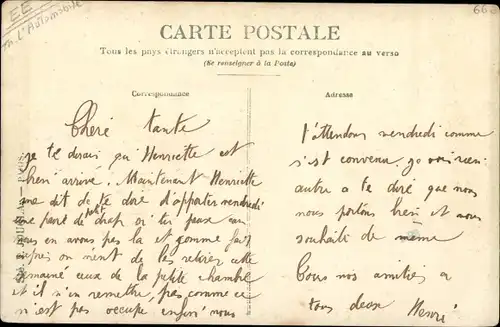 EE
Th. l'Automobile
66
CARTE POSTALE
Tous les pays étrangers n'acceptent pas la correspondance au verso
(Se renseigner à la Poste)
Correspondance
Chere tante
je te dirais qu'Henriette est
bien arrivé. Maintenant Henriette
me dit de te dire d'apporter vendredi
une paire de petit drap si tu peux car
nous en avons pas la et comme faut
après on vient de les retirés cette
semaine ceux de la petite chambre
et il n'en remettre, pas comme ce
n'est pas occupé enfin nous
Adresse
t'attendons vendredi comme
s'est convenu. je vois rien
autre a te dire que nous
nous portons bien et nous
souhaite de même
Tous nos amities a
tous deux Henri